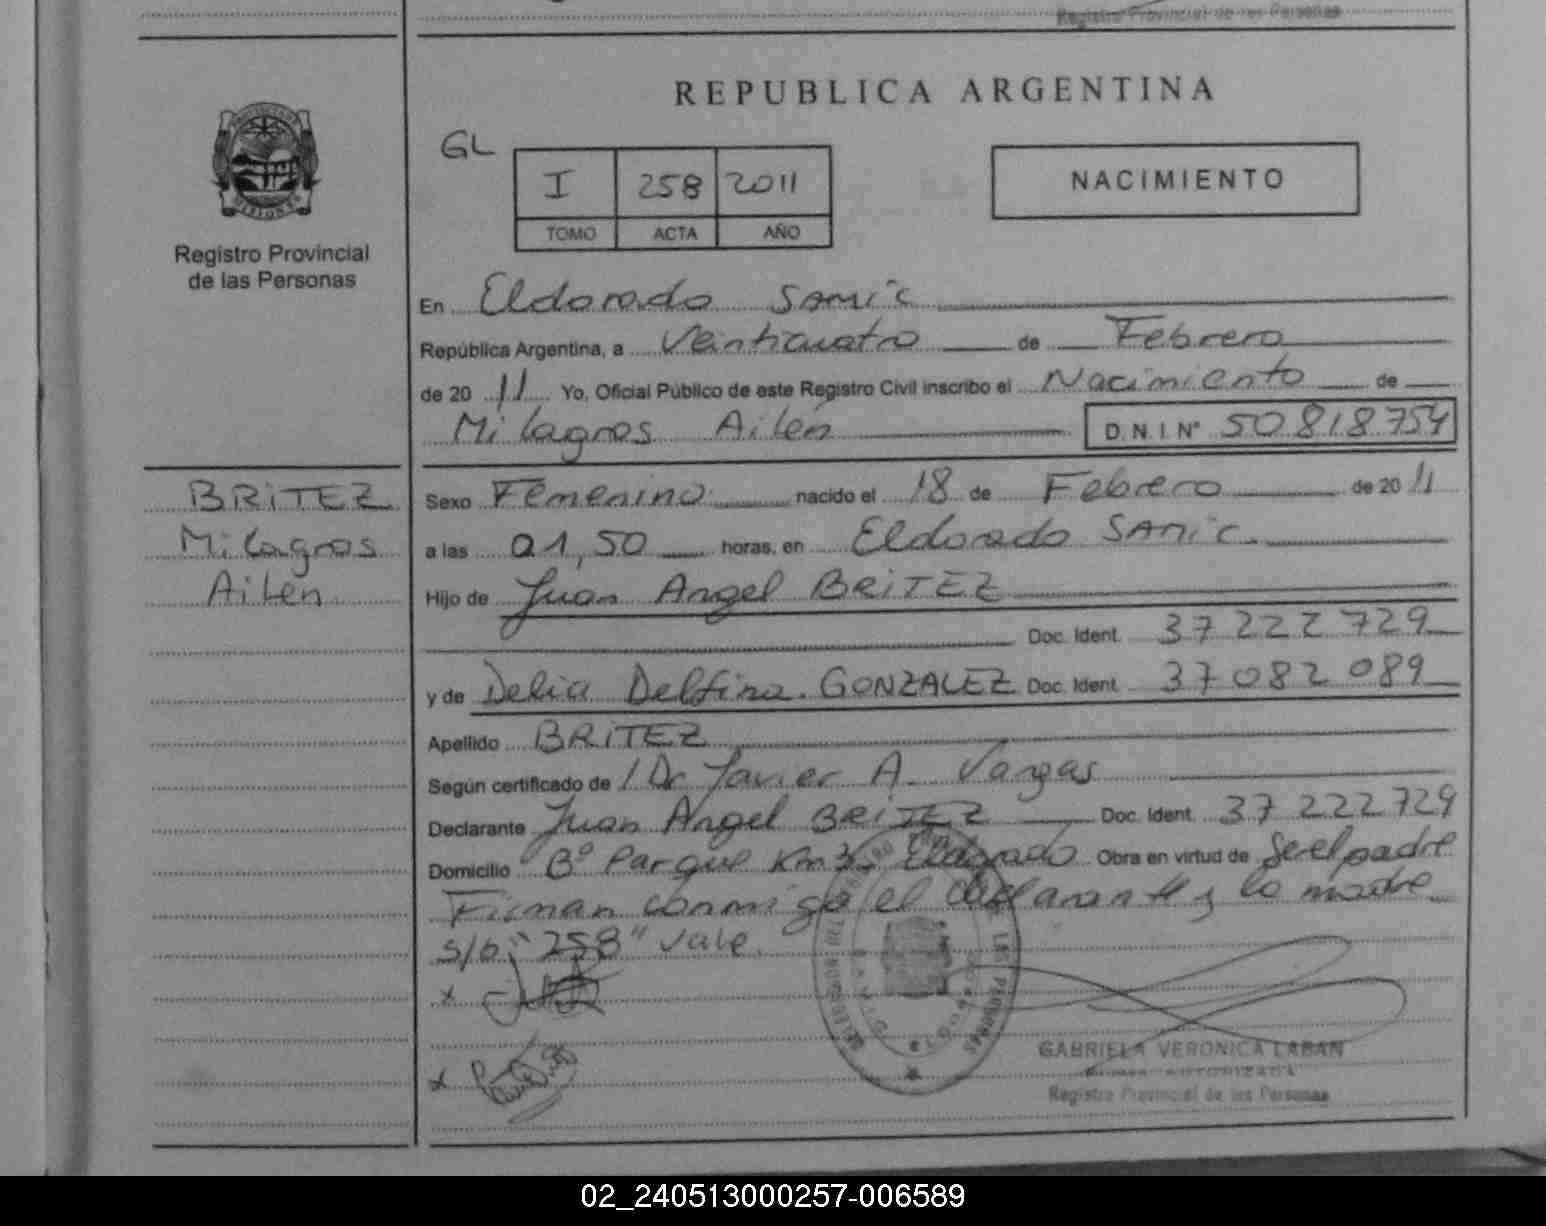 Registro Provincial de las Personas
REPUBLICA ARGENTINA
GL
I 258 2011
TOMO ACTA AÑO
NACIMIENTO
MISIONES
Registro Provincial
de las Personas
En Eldorado SAMIC
República Argentina, a Veinticuatro de Febrero
de 20 11 Yo, Oficial Público de este Registro Civil inscribo el Nacimiento de
Milagros Ailén D.N.I. N° 50 818.754
BRITEZ
Milagros
Ailen
Sexo Femenino nacido el 18 de Febrero de 20 11
a las 01,50 horas, en Eldorado SAMIC.
Hijo de Juan Angel BRITEZ
Doc. Ident. 37 222 729
y de Delia Delfina GONZALEZ Doc. Ident. 37 082 089
Apellido BRITEZ
Según certificado de Dr Javier A. Vargas
Declarante Juan Angel BRITEZ Doc. Ident. 37 222 729
Domicilio B° Parque Km 3, Eldorado Obra en virtud de Ser el padre
Firman conmigo el declarante y la madre
s/b "258" vale.
x
x
GABRIELA VERONICA LABAN
FIRMA AUTORIZADA
Registro Provincial de las Personas
02_240513000257-006589